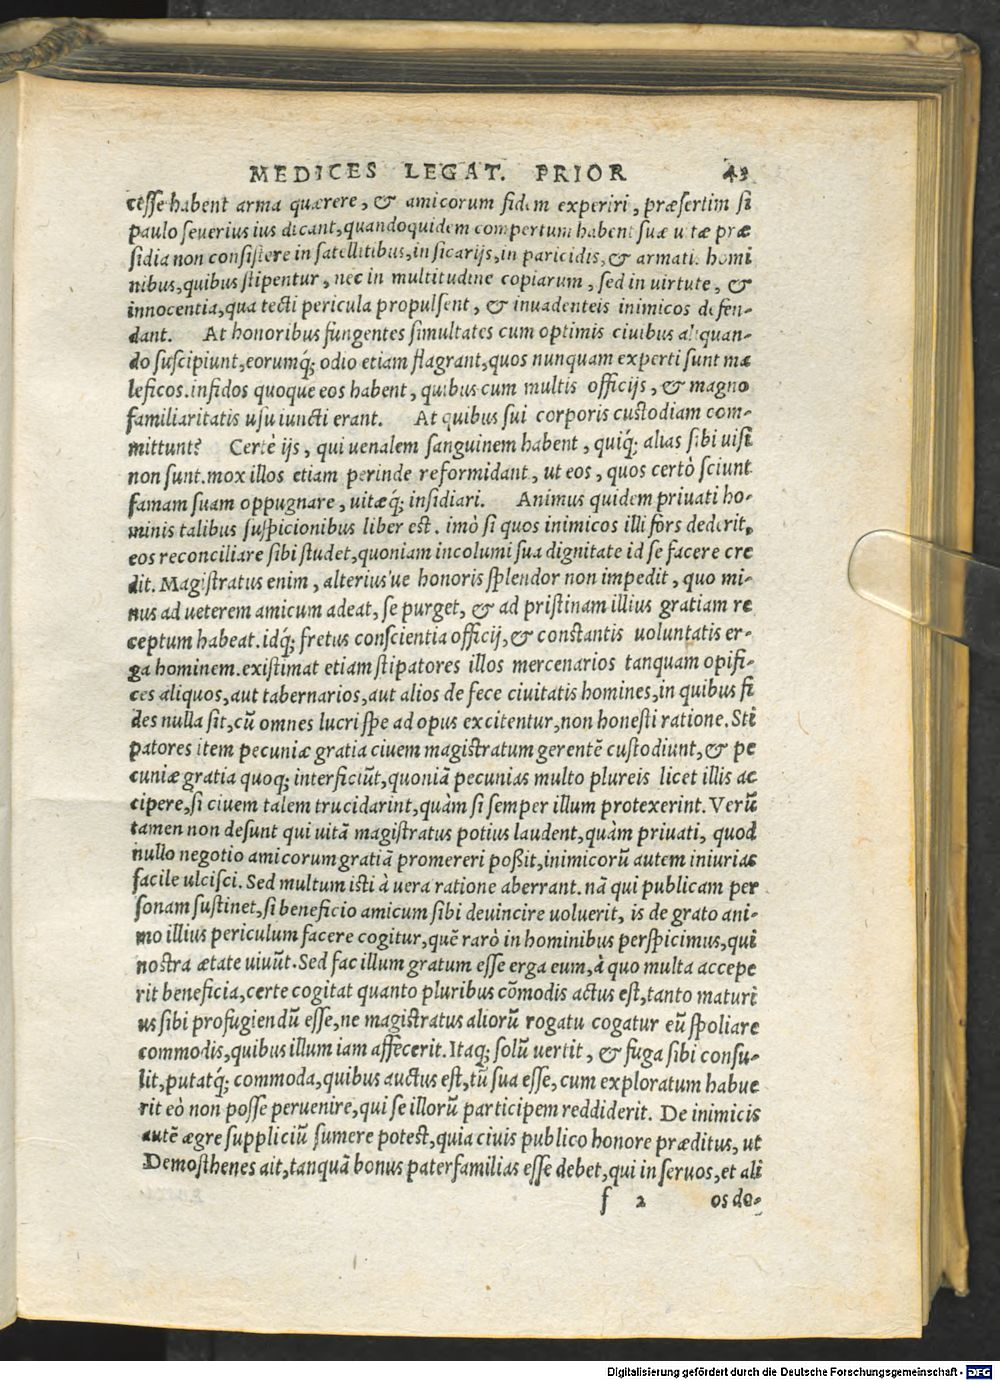 MEDICES LEGAT. PRIOR 43
cesse habent arma quærere, & amicorum fidem experiri, præsertim si
paulo seuerius ius dicant, quandoquidem compertum habent suæ uitæ præ
sidia non consistere in satellitibus, in sicarijs, in paricidis, & armatis homi
nibus, quibus stipentur, nec in multitudine copiarum, sed in uirtute, &
innocentia, qua tecti pericula propulsent, & inuadenteis inimicos defen-
dant. At honoribus fungentes simultates cum optimis ciuibus aliquan-
do suscipiunt, eorumq́; odio etiam flagrant, quos nunquam experti sunt ma
leficos. infidos quoque eos habent, quibus cum multis officijs, & magno
familiaritatis usu iuncti erant. At quibus sui corporis custodiam com-
mittunt? Certè ijs, qui uenalem sanguinem habent, quiq́; alias sibi uisi
non sunt. mox illos etiam perinde reformidant, ut eos, quos certò sciunt
famam suam oppugnare, uitæq́; insidiari. Animus quidem priuati ho-
minis talibus suspicionibus liber est. imò si quos inimicos illi fors dederit,
eos reconciliare sibi studet, quoniam incolumi sua dignitate id se facere cre
dit. Magistratus enim, alterius'ue honoris splendor non impedit, quo mi-
nus ad ueterem amicum adeat, se purget, & ad pristinam illius gratiam re
ceptum habeat. idq́; fretus conscientia officij, & constantis uoluntatis er-
ga hominem. existimat etiam stipatores illos mercenarios tanquam opifi-
ces aliquos, aut tabernarios, aut alios de fece ciuitatis homines, in quibus fi
des nulla sit, cū omnes lucri spe ad opus excitentur, non honesti ratione. Sti
patores item pecuniæ gratia ciuem magistratum gerentē custodiunt, & pe
cuniæ gratia quoq; interficiūt, quoniā pecunias multo plureis licet illis ac
cipere, si ciuem talem trucidarint, quàm si semper illum protexerint. Verū
tamen non desunt qui uitā magistratus potius laudent, quàm priuati, quod
nullo negotio amicorum gratiā promereri poßit, inimicorū autem iniurias
facile ulcisci. Sed multum isti à uera ratione aberrant. nā qui publicam per
sonam sustinet, si beneficio amicum sibi deuincire uoluerit, is de grato ani-
mo illius periculum facere cogitur, quē rarò in hominibus perspicimus, qui
nostra ætate uiuūt. Sed fac illum gratum esse erga eum, à quo multa accepe
rit beneficia, certe cogitat quanto pluribus cōmodis actus est, tanto maturi
us sibi profugiendū esse, ne magistratus aliorū rogatu cogatur eū spoliare
commodis, quibus illum iam affecerit. Itaq; solū uertit, & fuga sibi consu-
lit, putatq́; commoda, quibus auctus est, tū sua esse, cum exploratum habue
rit eò non posse peruenire, qui se illorū participem reddiderit. De inimicis
autē ægre suppliciū sumere potest, quia ciuis publico honore præditus, ut
Demosthenes ait, tanquā bonus paterfamilias esse debet, qui in seruos, et ali
f 2 os de-
Digitalisierung gefördert durch die Deutsche Forschungsgemeinschaft - DFG